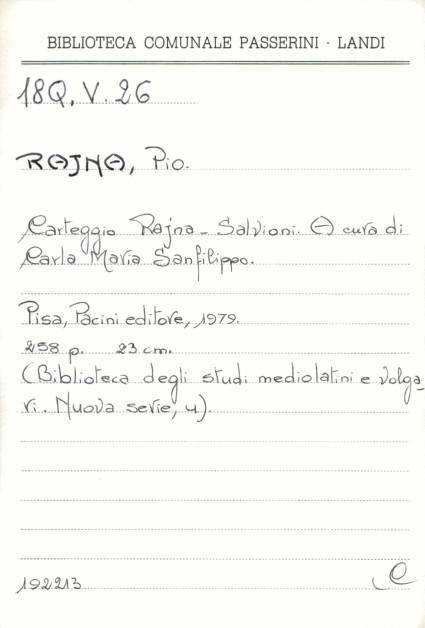 BIBLIOTECA COMUNALE PASSERINI - LANDI
18Q.V.26
RAJNA, Pio.
Carteggio Rajna - Salvioni. A cura di
Carla Maria Sanfilippo.
Pisa, Pacini editore, 1979.
258 p. 23 cm.
(Biblioteca degli studi mediolatini e volga-
ri. Nuova serie, 4).
192213
C